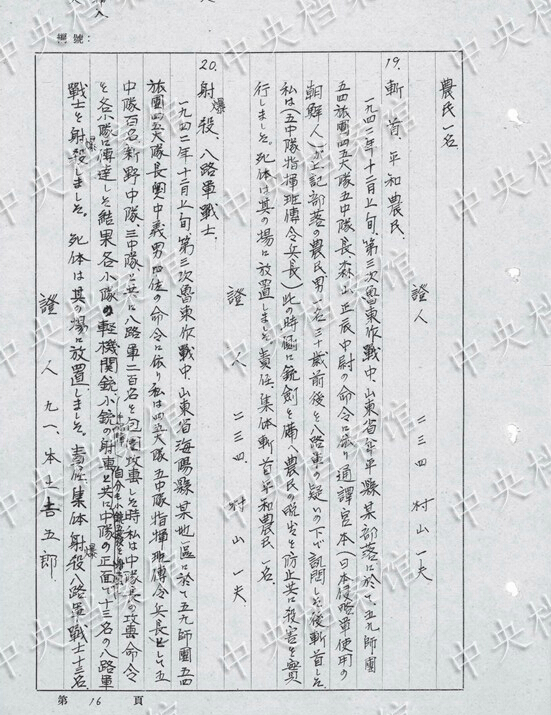 編號：
農民一名
證人 二三四 村山一夫
19. 斬首、平和農民.
一九四二年十二月上旬、第三次魯東作戰中、山東省牟平縣某部落に於て、五九師團
五四旅團四五大隊五中隊長森山正辰中尉の命令に依り通譯宮本(日本侵略軍使用の
朝鮮人)が上記部落の農民男一名三十歲前後を八路軍の疑いの下で訊問した後斬首した
私は(五中隊指揮班傳令兵長)此の時側に銃劍を備へ農民の脫出を防止共に殺害を實
行しました。死体は其の場に放置しました。責任.集体斬首平和農民一名.
證人 二三四. 村山一夫
20. 射爆殺、八路軍戰士.
一九四二年十二月上旬第三次魯東作戰中、山東省海陽縣某地區に於て五九師團五四
旅團四五大隊長奧中義男 の命令に依り私は四五大隊五中隊指揮班傳令兵長として五
中隊百名新野中隊三中隊と共に八路軍二百名を包圍攻擊した時私は中隊長の攻擊命令
を各小隊に傳達した結果各小隊の輕機關銃小銃の射擊と共に中隊の正面で十三名の八路軍
戰士を射爆殺しました。死体は其の場に放置しました。責任集体射爆殺八路軍戰士十三名.
證人 九一、本土吉五郎
第 16 頁
中央档案馆